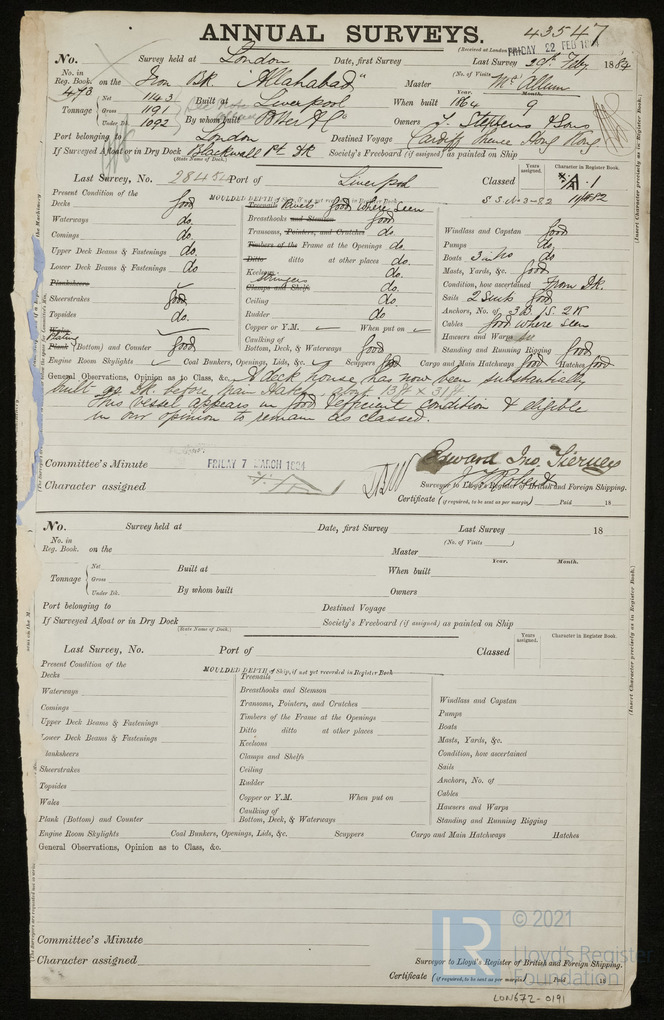 ANNUAL SURVEYS.
43547
(Received at London FRIDAY 22 FEB 18
No. Survey held at London Date, first Survey Last Survey 2d Feby 1884
No. in Reg. Book. on the Iron Bk "Allahabad" Master (No. of Visits) McCallum
473 Year. Month.
Tonnage Net 1143 Built at Liverpool When built 1864 9
Gross 1191
Under Dk. 1092 By whom built Owners T. Stephens & Sons
Port belonging to London Destined Voyage Cardiff thence Hong Kong
If Surveyed Afloat or in Dry Dock Blackwall Pt Dk Society's Freeboard (if assigned) as painted on Ship
(State Name of Dock.)
Last Survey, No. Port of Liverpool Classed
Years assigned. Character in Register Book.
A 1
S S No 3-82
MOULDED DEPTH of Ship, if not yet recorded in Register Book
Present Condition of the
Decks good
Waterways do.
Comings do.
Upper Deck Beams & Fastenings do.
Lower Deck Beams & Fastenings do
Planksheers
Sheerstrakes good
Topsides do.
Wales
Plating
Plank (Bottom) and Counter good
Treenails Rivets good where seen
Breasthooks and Stemson good
Transoms, Pointers, and Crutches do.
Timbers of the Frame at the Openings do.
Ditto ditto at other places do.
Keelsons do.
Stringers
Clamps and Shelfs do.
Ceiling do.
Rudder do.
Copper or Y.M. When put on
Caulking of
Bottom, Deck, & Waterways good
Windlass and Capstan good
Pumps do.
Boats 3 in No do.
Masts, Yards, &c. good
Condition, how ascertained From Dk.
Sails 2 Suits good
Anchors, No. of 3 B. 1 S. 2 K
Cables good where seen
Hawsers and Warps do
Standing and Running Rigging good
Engine Room Skylights Coal Bunkers, Openings, Lids, &c. Scuppers good Cargo and Main Hatchways good Hatches good
General Observations, Opinion as to Class, &c. A deck house has now been substantially
built on Dk. before main
This vessel appears in good & efficient condition & eligible
in our opinion to remain as classed.
Committee's Minute FRIDAY 7 MARCH 1884
Edward Jno. Tierney
Character assigned
Surveyor to Lloyd's Register of British and Foreign Shipping.
Certificate (if required, to be sent as per margin) Paid 18
No. Survey held at Date, first Survey Last Survey 18
No. in Reg. Book. on the Master (No. of Visits )
Year. Month.
Tonnage Net Built at When built
Gross
Under Dk. By whom built Owners
Port belonging to Destined Voyage
If Surveyed Afloat or in Dry Dock Society's Freeboard (if assigned) as painted on Ship
(State Name of Dock.)
Last Survey, No. Port of Classed
Years assigned. Character in Register Book.
MOULDED DEPTH of Ship, if not yet recorded in Register Book
Present Condition of the
Decks
Waterways
Comings
Upper Deck Beams & Fastenings
Lower Deck Beams & Fastenings
Planksheers
Sheerstrakes
Topsides
Wales
Plank (Bottom) and Counter
Treenails
Breasthooks and Stemson
Transoms, Pointers, and Crutches
Timbers of the Frame at the Openings
Ditto ditto at other places
Keelsons
Clamps and Shelfs
Ceiling
Rudder
Copper or Y.M. When put on
Caulking of
Bottom, Deck, & Waterways
Windlass and Capstan
Pumps
Boats
Masts, Yards, &c.
Condition, how ascertained
Sails
Anchors, No. of
Cables
Hawsers and Warps
Standing and Running Rigging
Engine Room Skylights Coal Bunkers, Openings, Lids, &c. Scuppers Cargo and Main Hatchways Hatches
General Observations, Opinion as to Class, &c.
Committee's Minute
Character assigned
Surveyor to Lloyd's Register of British and Foreign Shipping.
Certificate (if required, to be sent as per margin) Paid 18
(Insert Character precisely as in Register Book.)
(Insert Character precisely as in Register Book.)
LR © 2021
Lloyd's Register
Foundation
LON672-0191